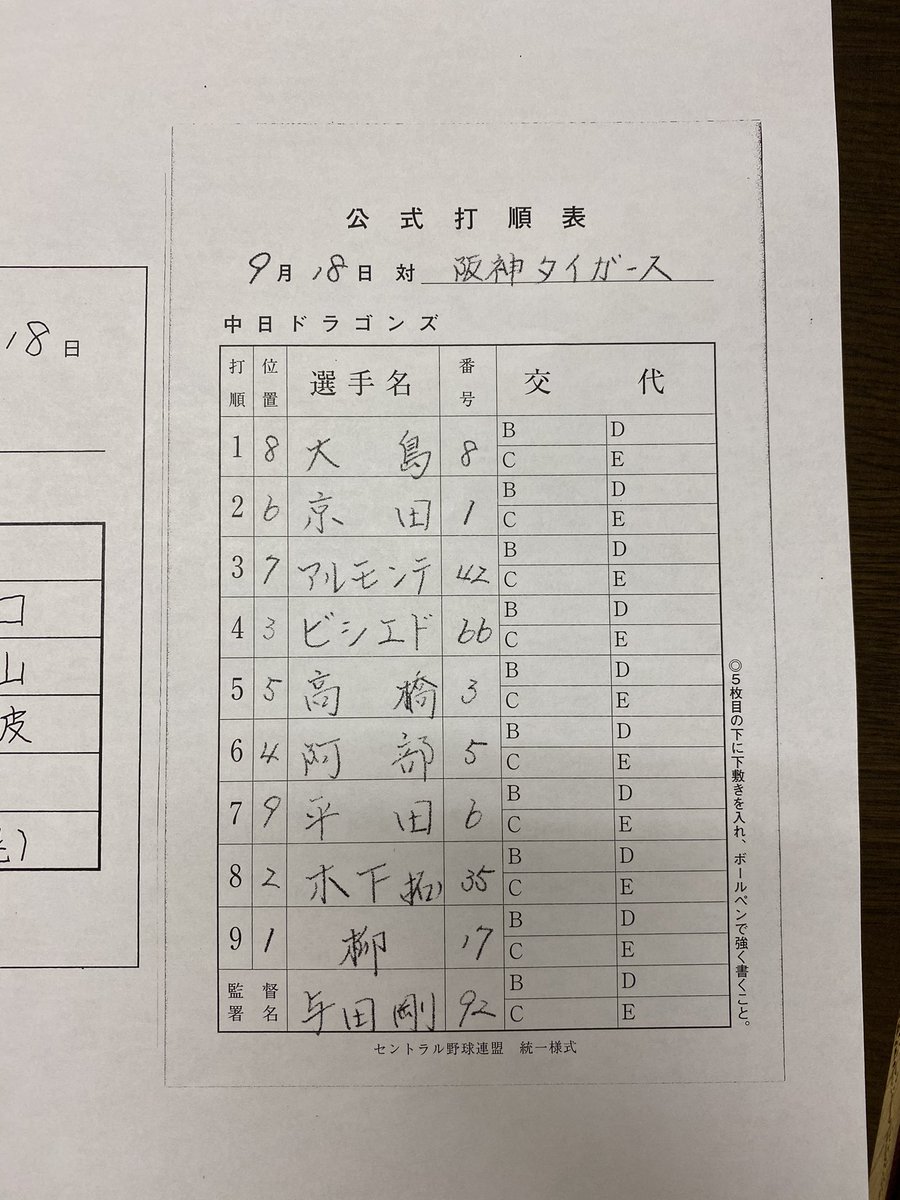 18日
口
山
皮
公式打順表
9月18日 対 阪神タイガース
中日ドラゴンズ
打順 位置 選手名 番号 交代
1 8 大島 8 B D C E
2 6 京田 1 B D C E
3 7 アルモンテ 42 B D C E
4 3 ビシエド 66 B D C E
5 5 高橋 3 B D C E
6 4 阿部 5 B D C E
7 9 平田 6 B D C E
8 2 木下拓 35 B D C E
9 1 柳 17 B D C E
監督署名 与田剛 92 B D C E
セントラル野球連盟 統一様式
◎5枚目の下に下敷きを入れ、ボールペンで強く書くこと。